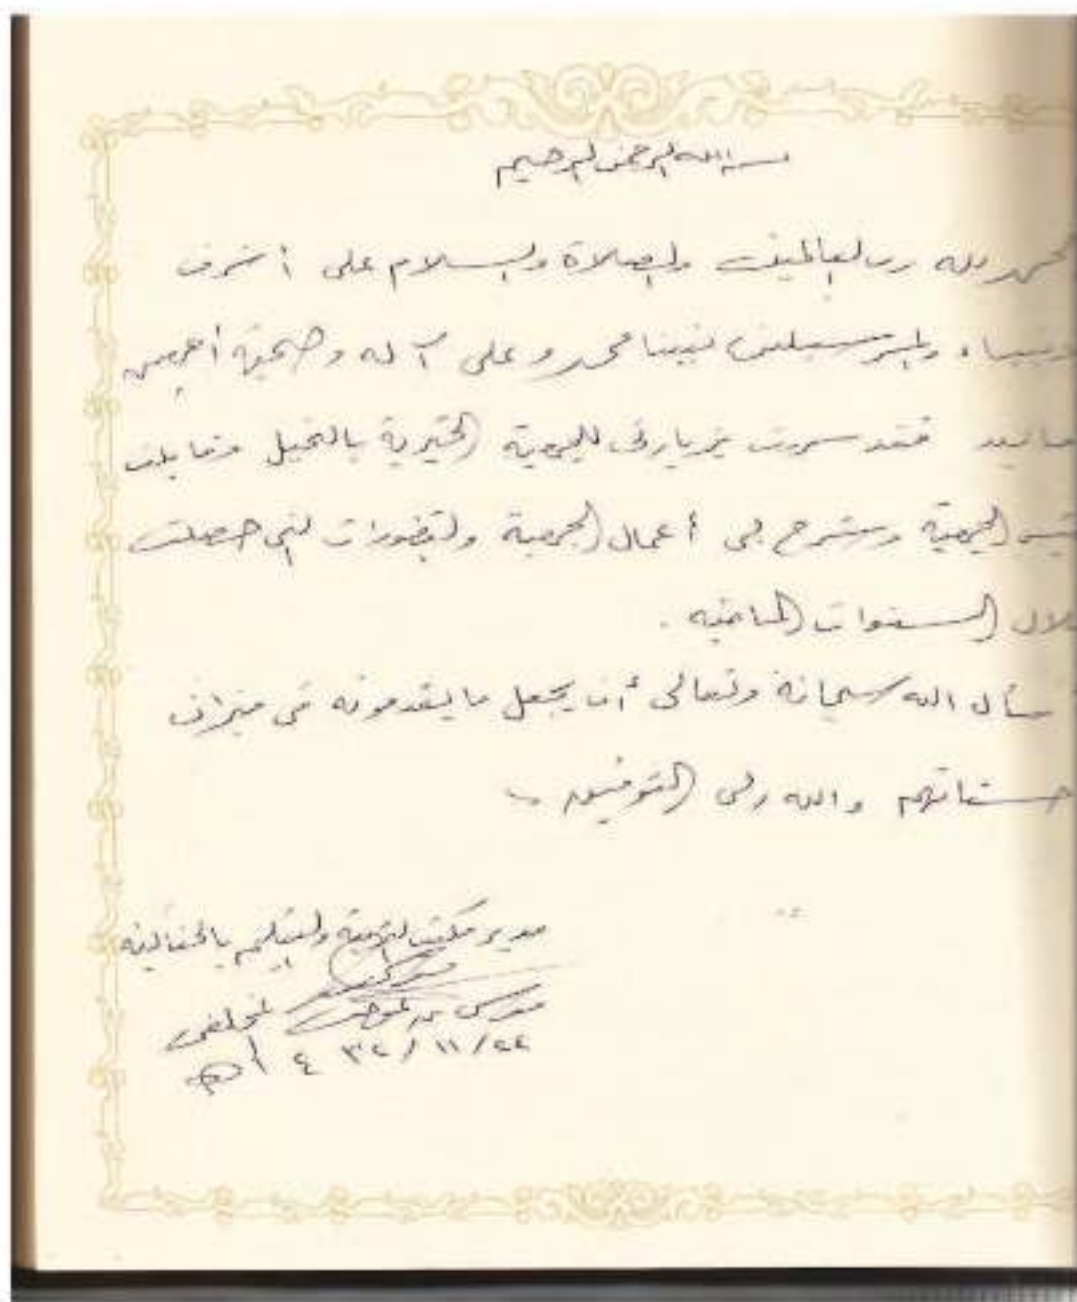 بسم الله الرحمن الرحيم
الحمد لله رب العالمين والصلاة والسلام على أشرف
الأنبياء والمرسلين نبينا محمد وعلى آله وصحبه أجمعين
أما بعد فقد سررت بزيارتي للجمعية الخيرية بالنخيل وقابلت
رئيس الجمعية وشرح لي أعمال الجمعية والتطورات التي حصلت
خلال السنوات الماضية .
نسأل الله سبحانه وتعالى أن يجعل ما يقدمونه في ميزان
حسناتهم والله ولي التوفيق ،،
مدير مكتب التربية والتعليم بالحناكية
١٤٣٢/١١/٢٢هـ